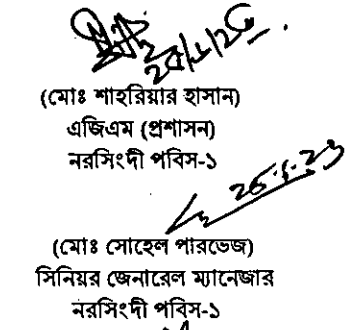 (মোঃ শাহরিয়ার হাসান)
এজিএম (প্রশাসন)
নরসিংদী পবিস-১
(মোঃ সোহেল পারভেজ)
সিনিয়র জেনারেল ম্যানেজার
নরসিংদী পবিস-১